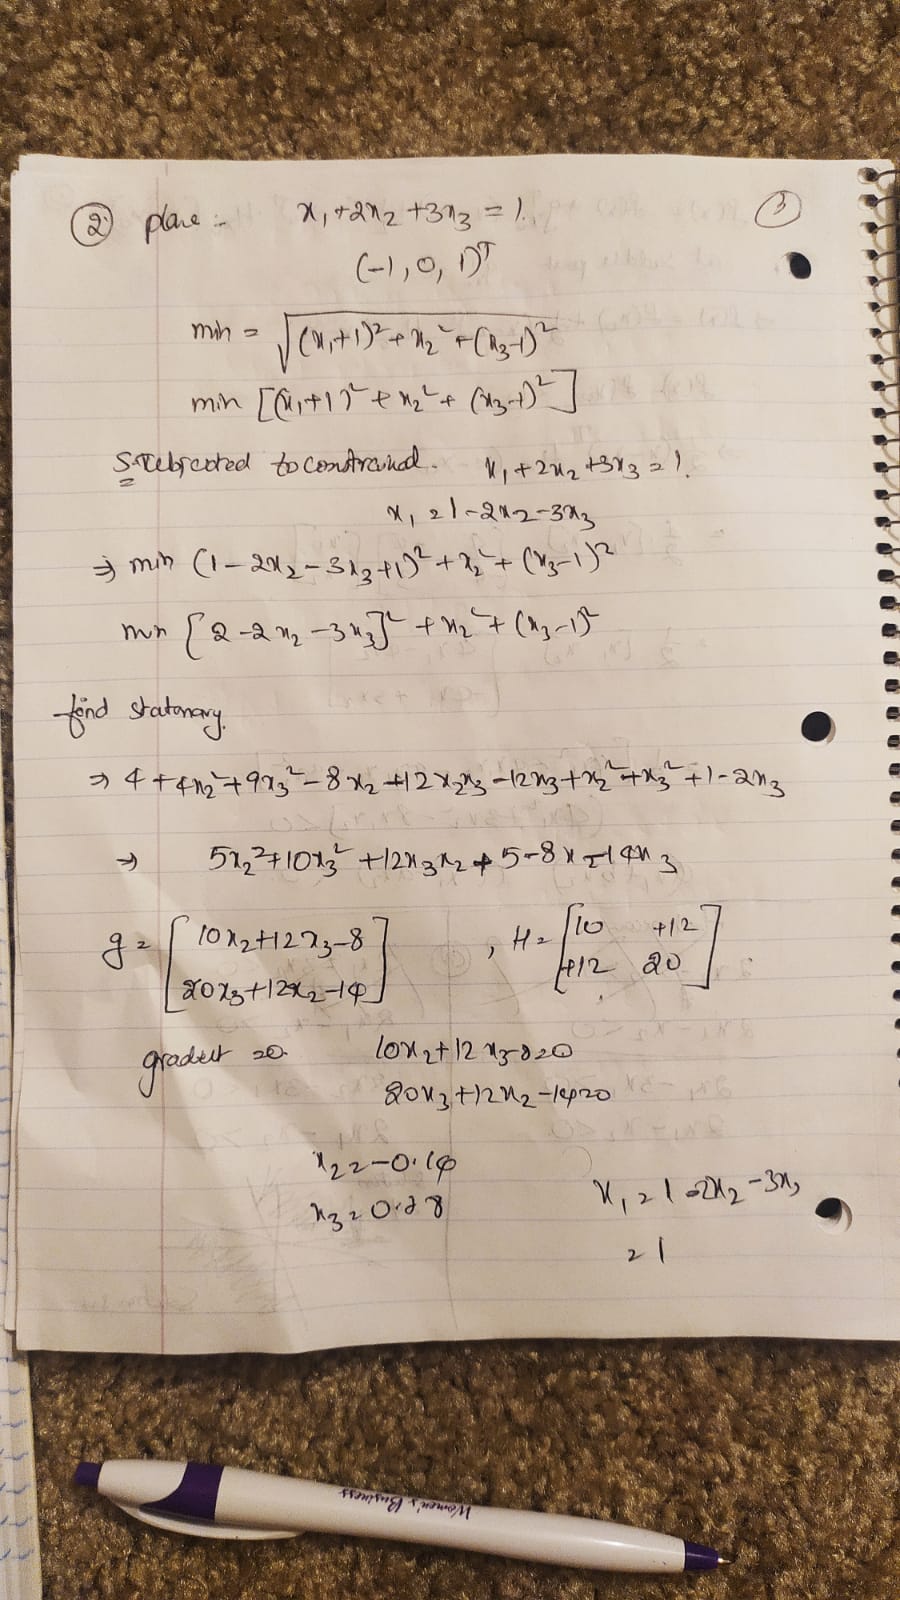 ② plane :- x₁+2x₂+3x₃ = 1. ③
(-1, 0, 1)ᵀ
min = √((x₁+1)²+x₂²+(x₃-1)²)
min [(x₁+1)²+x₂²+(x₃-1)²]
to x₁+2x₂+3x₃=1.
x₁=1-2x₂-3x₃
⇒ min (1-2x₂-3x₃+1)²+x₂²+(x₃-1)²
min [2-2x₂-3x₃]²+x₂²+(x₃-1)²
find stationary.
⇒ 4+4x₂²+9x₃²-8x₂+12x₂x₃-12x₃+x₂²+x₃²+1-2x₃
⇒ 5x₂²+10x₃²+12x₃x₂+5-8x₂-14x₃
g = [10x₂+12x₃-8 , H = [10 +12
20x₃+12x₂-14] +12 20]
gradient =0. 10x₂+12x₃-8=0
20x₃+12x₂-14=0
x₂=-0.14
x₃= x₁=1-2x₂-3x₃
=1
Women's Business